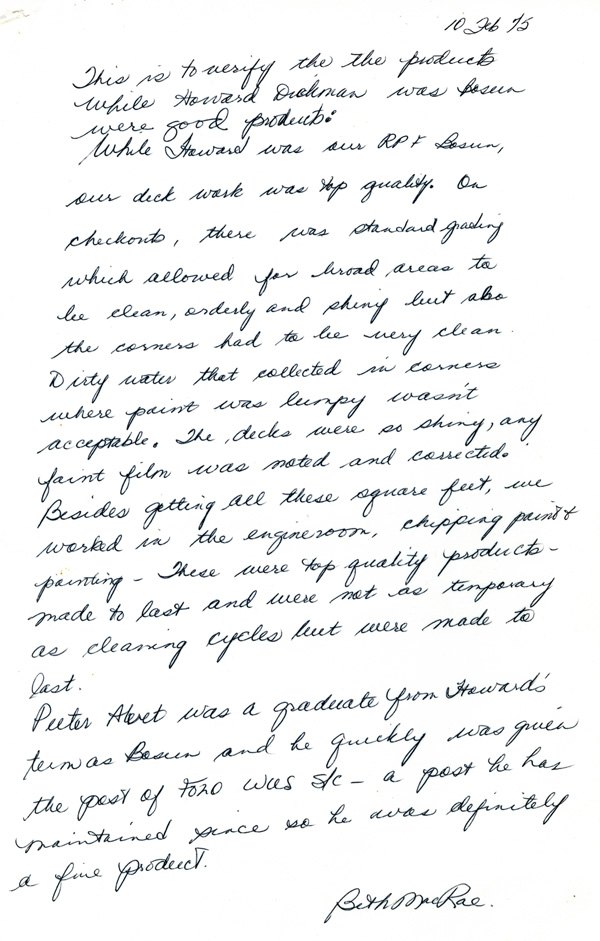 10 Feb 75
This is to verify the the products
while Howard Dickman was Bosun
were good products.
While Howard was our RPF Bosun,
our deck work was top quality. On
checkouts, there was standard grading
which allowed for broad areas to
be clean, orderly and shiny but also
the corners had to be very clean.
Dirty water that collected in corners
where paint was lumpy wasn't
acceptable. The decks were so shiny, any
faint film was noted and corrected.
Besides getting all these square feet, we
worked in the engineroom, chipping paint &
painting - These were top quality products -
made to last and were not as temporary
as cleaning cycles but were made to
last.
Peeter was a graduate from Howard's
term as Bosun and he quickly was given
the post of I/C - a post he has
maintained since so he was definitely
a fine product.
Beth MacRae.